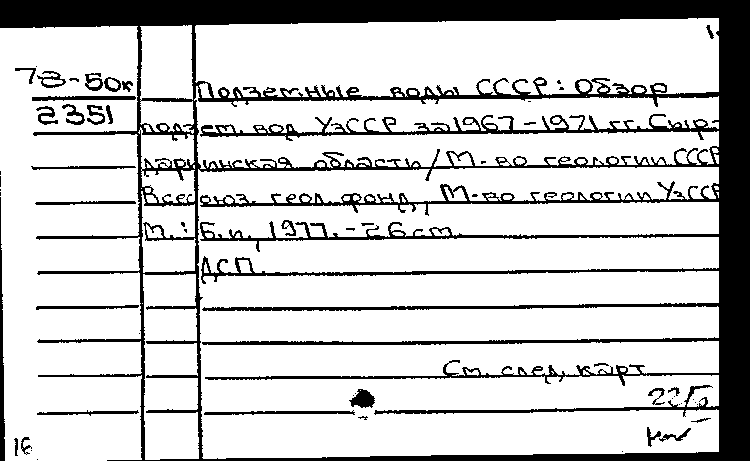 78-50к
2351
Подземные воды СССР: Обзор
подзем. вод УзССР за 1967-1971 гг. Сыр-
дарьинская области / М-во геологии СССР
Всесоюз. геол. фонд, М-во геологии УзССР
М.: Б.и., 1977. - 26 см.
ДСП.
См. след. карт
16